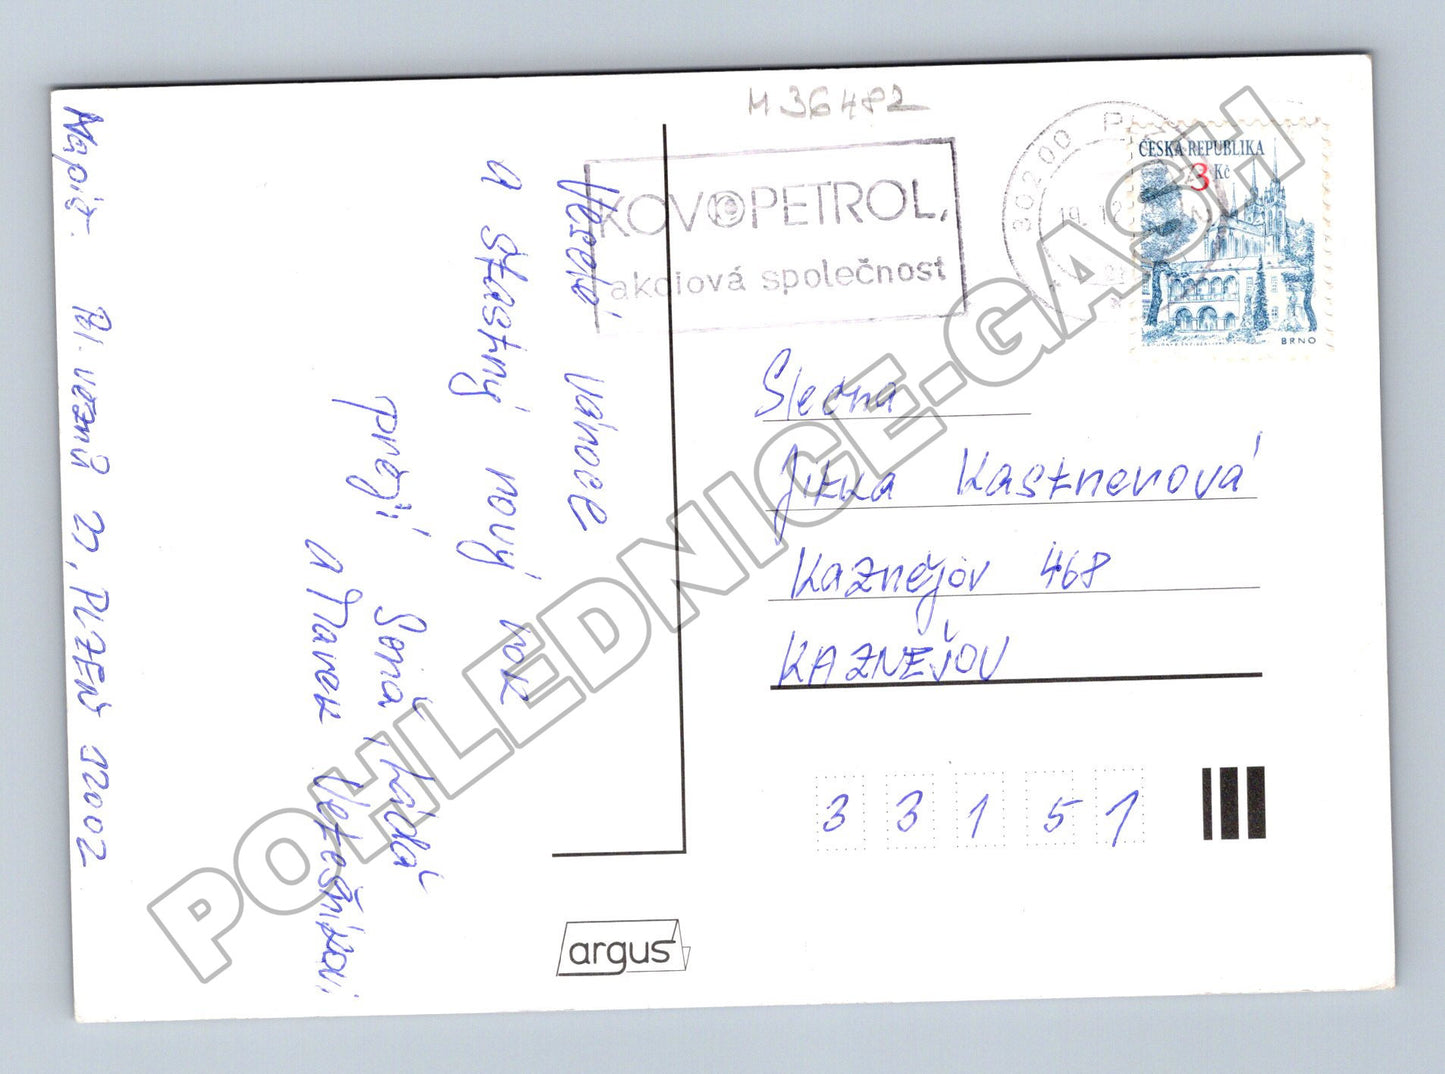 M 36482
KOVOPETROL,
akciová společnost
30200 P
19. 12
ČESKÁ REPUBLIKA
3 Kč
BRNO
Veselé vánoce
a šťastný nový rok
přejí
Soňa, Láďa
a Marek Vetešníkovi.
Napiš. Pol. vězňů 27, PLZEŇ 32002
Slečna
Jitka Kastnerová
Kaznějov 468
KAZNĚJOV
33151
argus
POHLEDNICE-GASH